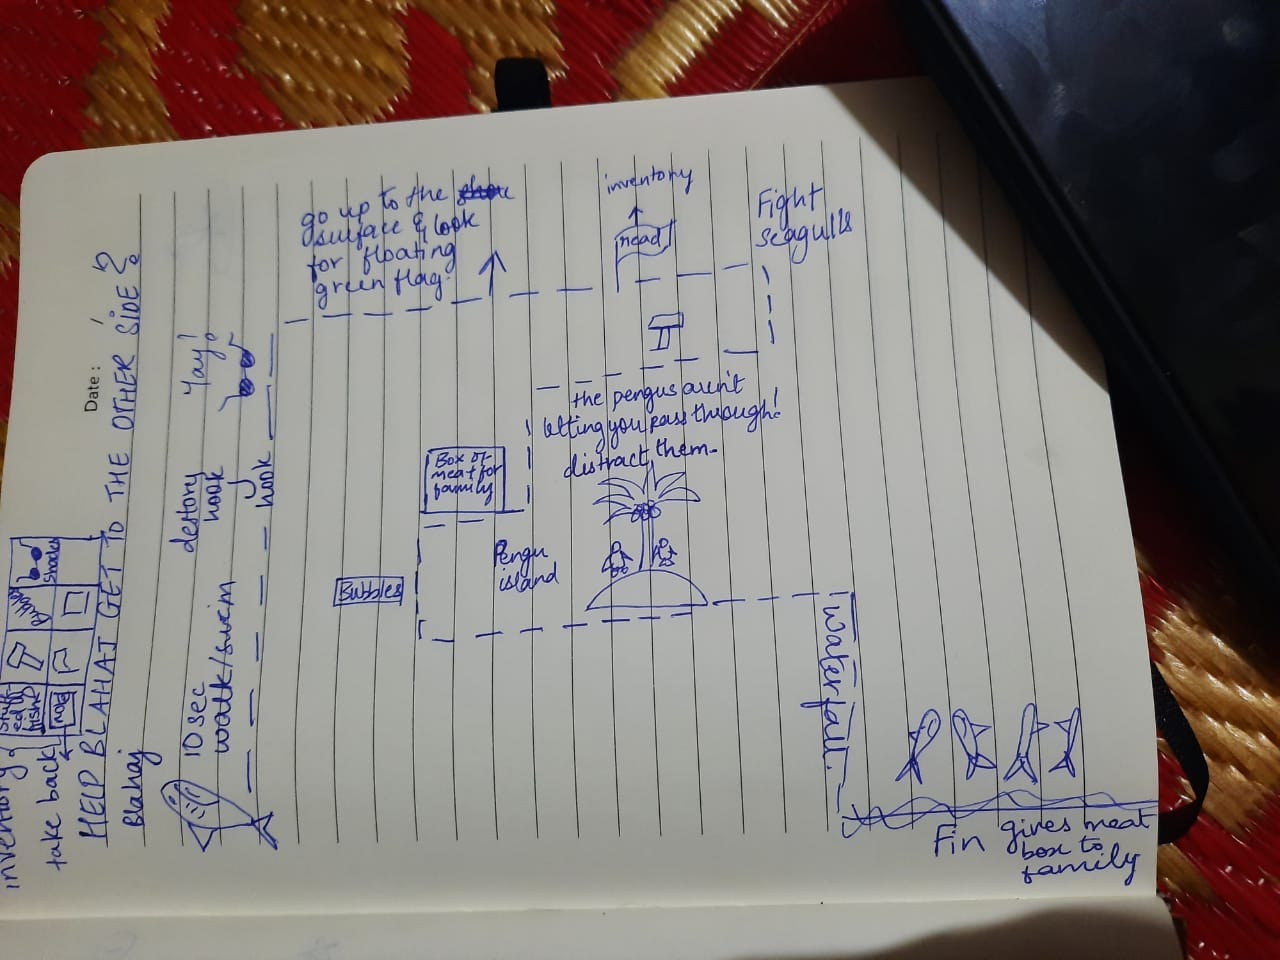 Date :
inventory
take back
stuff-
ed up
fishs
Box
shades
HELP BLAHAJ GET TO THE OTHER SIDE?
Blahaj
10 sec
walk/swim
destory
hook
Yay!
hook
go up to the
surface & look
for floating
green flag.
inventory
read
Fight
seagulls
the pengus aren't
letting you pass through!
distract them-
Box of
meat for
family
Bubbles
Pengu
island
Waterfall.
Fin gives meat
box to
family